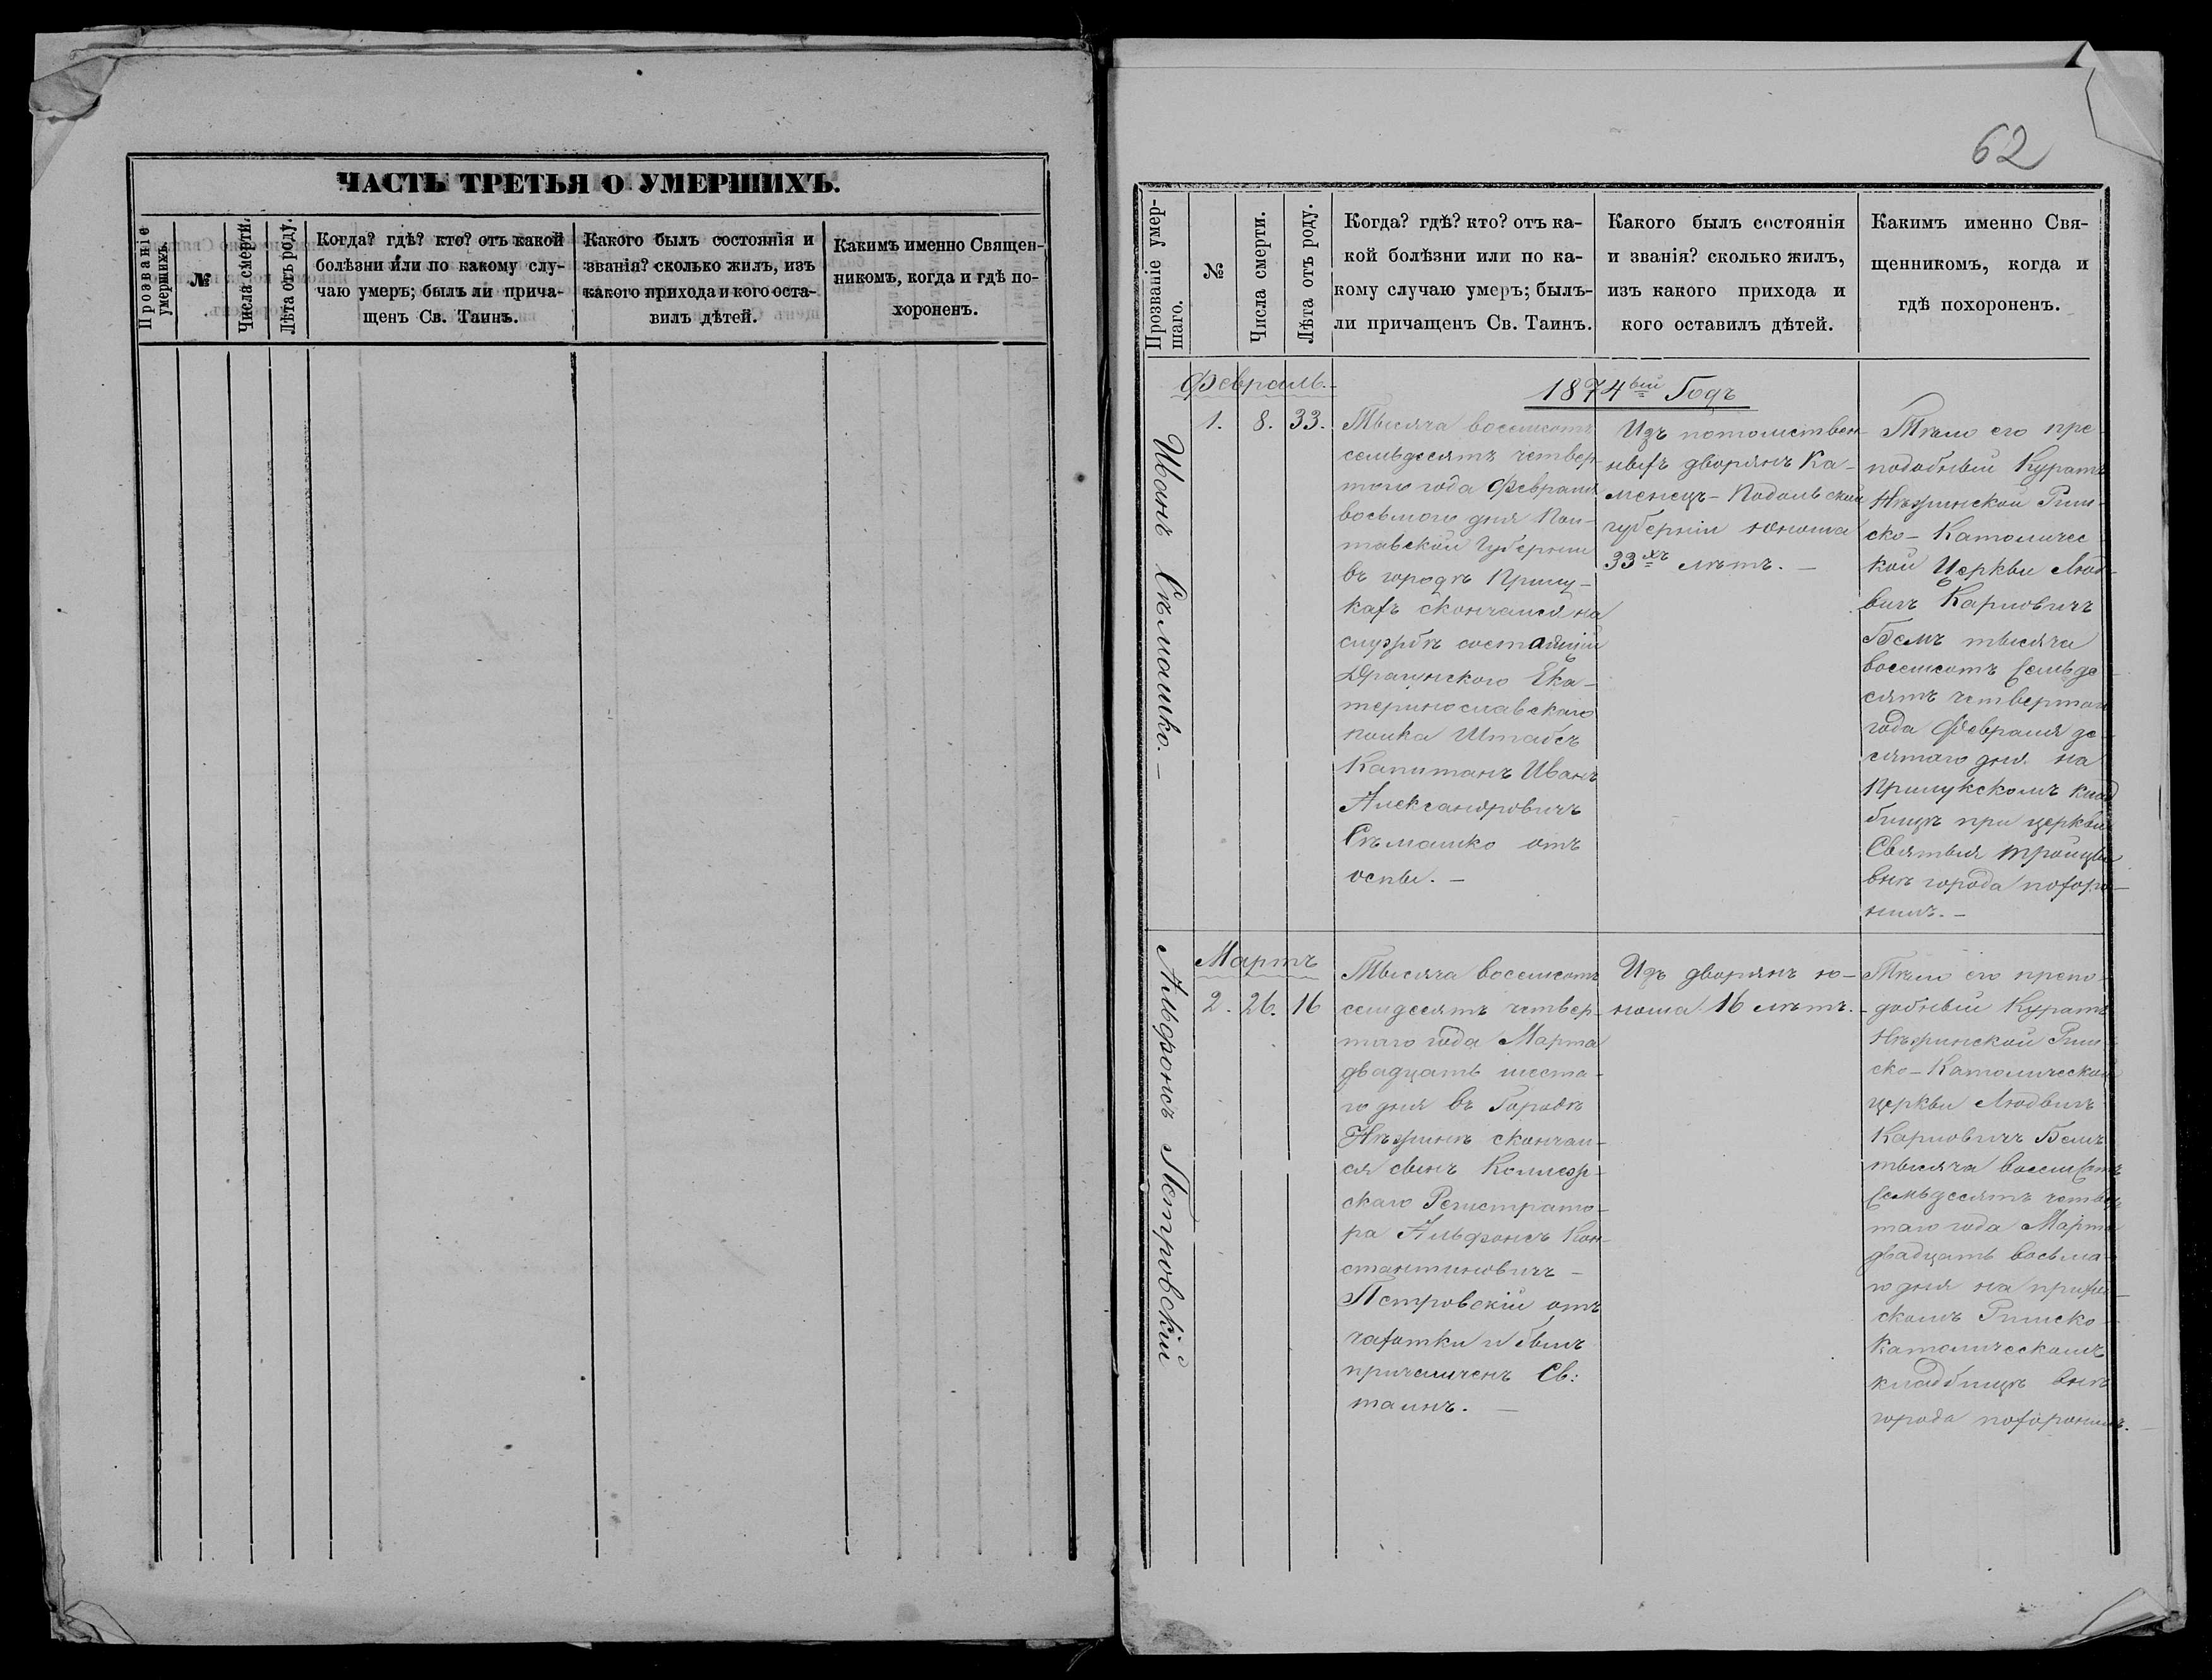 ЧАСТЬ ТРЕТЬЯ О УМЕРШИХЪ.
Прозваніе умершихъ.
№
Числа смерти.
Лѣта отъ роду.
Когда? гдѣ? кто? отъ какой
болѣзни или по какому слу-
чаю умеръ; былъ ли прича-
щенъ Св. Таинъ.
Какого былъ состоянія и
званія? сколько жилъ, изъ
какого прихода и кого оста-
вилъ дѣтей.
Какимъ именно Священ-
никомъ, когда и гдѣ по-
хороненъ.
62
Прозваніе умер-
шаго.
№
Числа смерти.
Лѣта отъ роду.
Когда? гдѣ? кто? отъ ка-
кой болѣзни или по ка-
кому случаю умеръ; былъ-
ли причащенъ Св. Таинъ.
Какого былъ состоянія
и званія? сколько жилъ,
изъ какого прихода и
кого оставилъ дѣтей.
Какимъ именно Свя-
щенникомъ, когда и
гдѣ похороненъ.
Февраль.
1874ый Годъ
Иванъ Сѣмашко.
1.
8.
33.
Тысяча восемсотъ
семьдесятъ четвер-
того года Февраля
восьмого дня Пол-
тавской Губерніи
въ городѣ Прилу-
кахъ скончался на
службѣ состаящій
Драгунского Ека-
теринославскаго
полка Штабсъ
Капитанъ Иванъ
Александровичъ
Сѣмашко отъ
оспы. –
Изъ потомствен-
ныхъ дворянъ Ка-
менецъ-Подольской
губерніи юноша
33хъ лѣтъ. –
Тѣло его пре-
подобный Куратъ
Нѣжинской Рим-
ско-Католичес-
кой Церкви Люд-
вигъ Карловичъ
Бемъ тысяча
восемсотъ семьде-
сятъ четвертаго
года Февраля де-
сятаго дня на
Прилукскомъ клад
бищѣ при церкви
Святыя Троицы
внѣ города похоро-
нилъ. –
Мартъ
Альфонсъ Петровскій
2.
26.
16
Тысяча восемсотъ
семдесятъ четвер-
таго года Марта
двадцать шеста-
го дня въ Городѣ
Нѣжинѣ скончал-
ся сынъ Коллеж-
скаго Регистрато-
ра Альфонсъ Кон-
стантиновичъ –
Петровскій отъ
чахотки и былъ
Св:
таинъ. –
Изъ дворянъ ю-
ноша 16 лѣтъ. –
Тѣло его препо-
добный Куратъ
Нѣжинской Рим
ско-Католической
церкви Людвигъ
Карловичъ Бемъ
тысяча восемсотъ
семьдесятъ четвер
таго года Марта
двадцать восьма-
го дня на
скомъ Римско-
Католическомъ
кладбищѣ внѣ
города похоронилъ. –